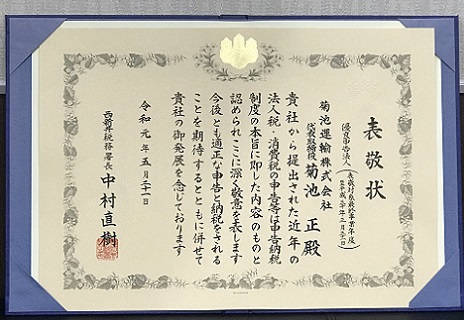 表敬状
(優良申告法人)
菊池運輸株式会社
代表取締役 菊池 正 殿
貴社から提出された近年の
法人税・消費税の申告等は申告納税
制度の本旨に即した内容のものと
認められここに深く敬意を表します
今後とも適正な申告と納税をされる
ことを期待するとともに併せて
貴社の御発展を念じております
令和元年五月二十一日
西新井税務署長 中村直樹